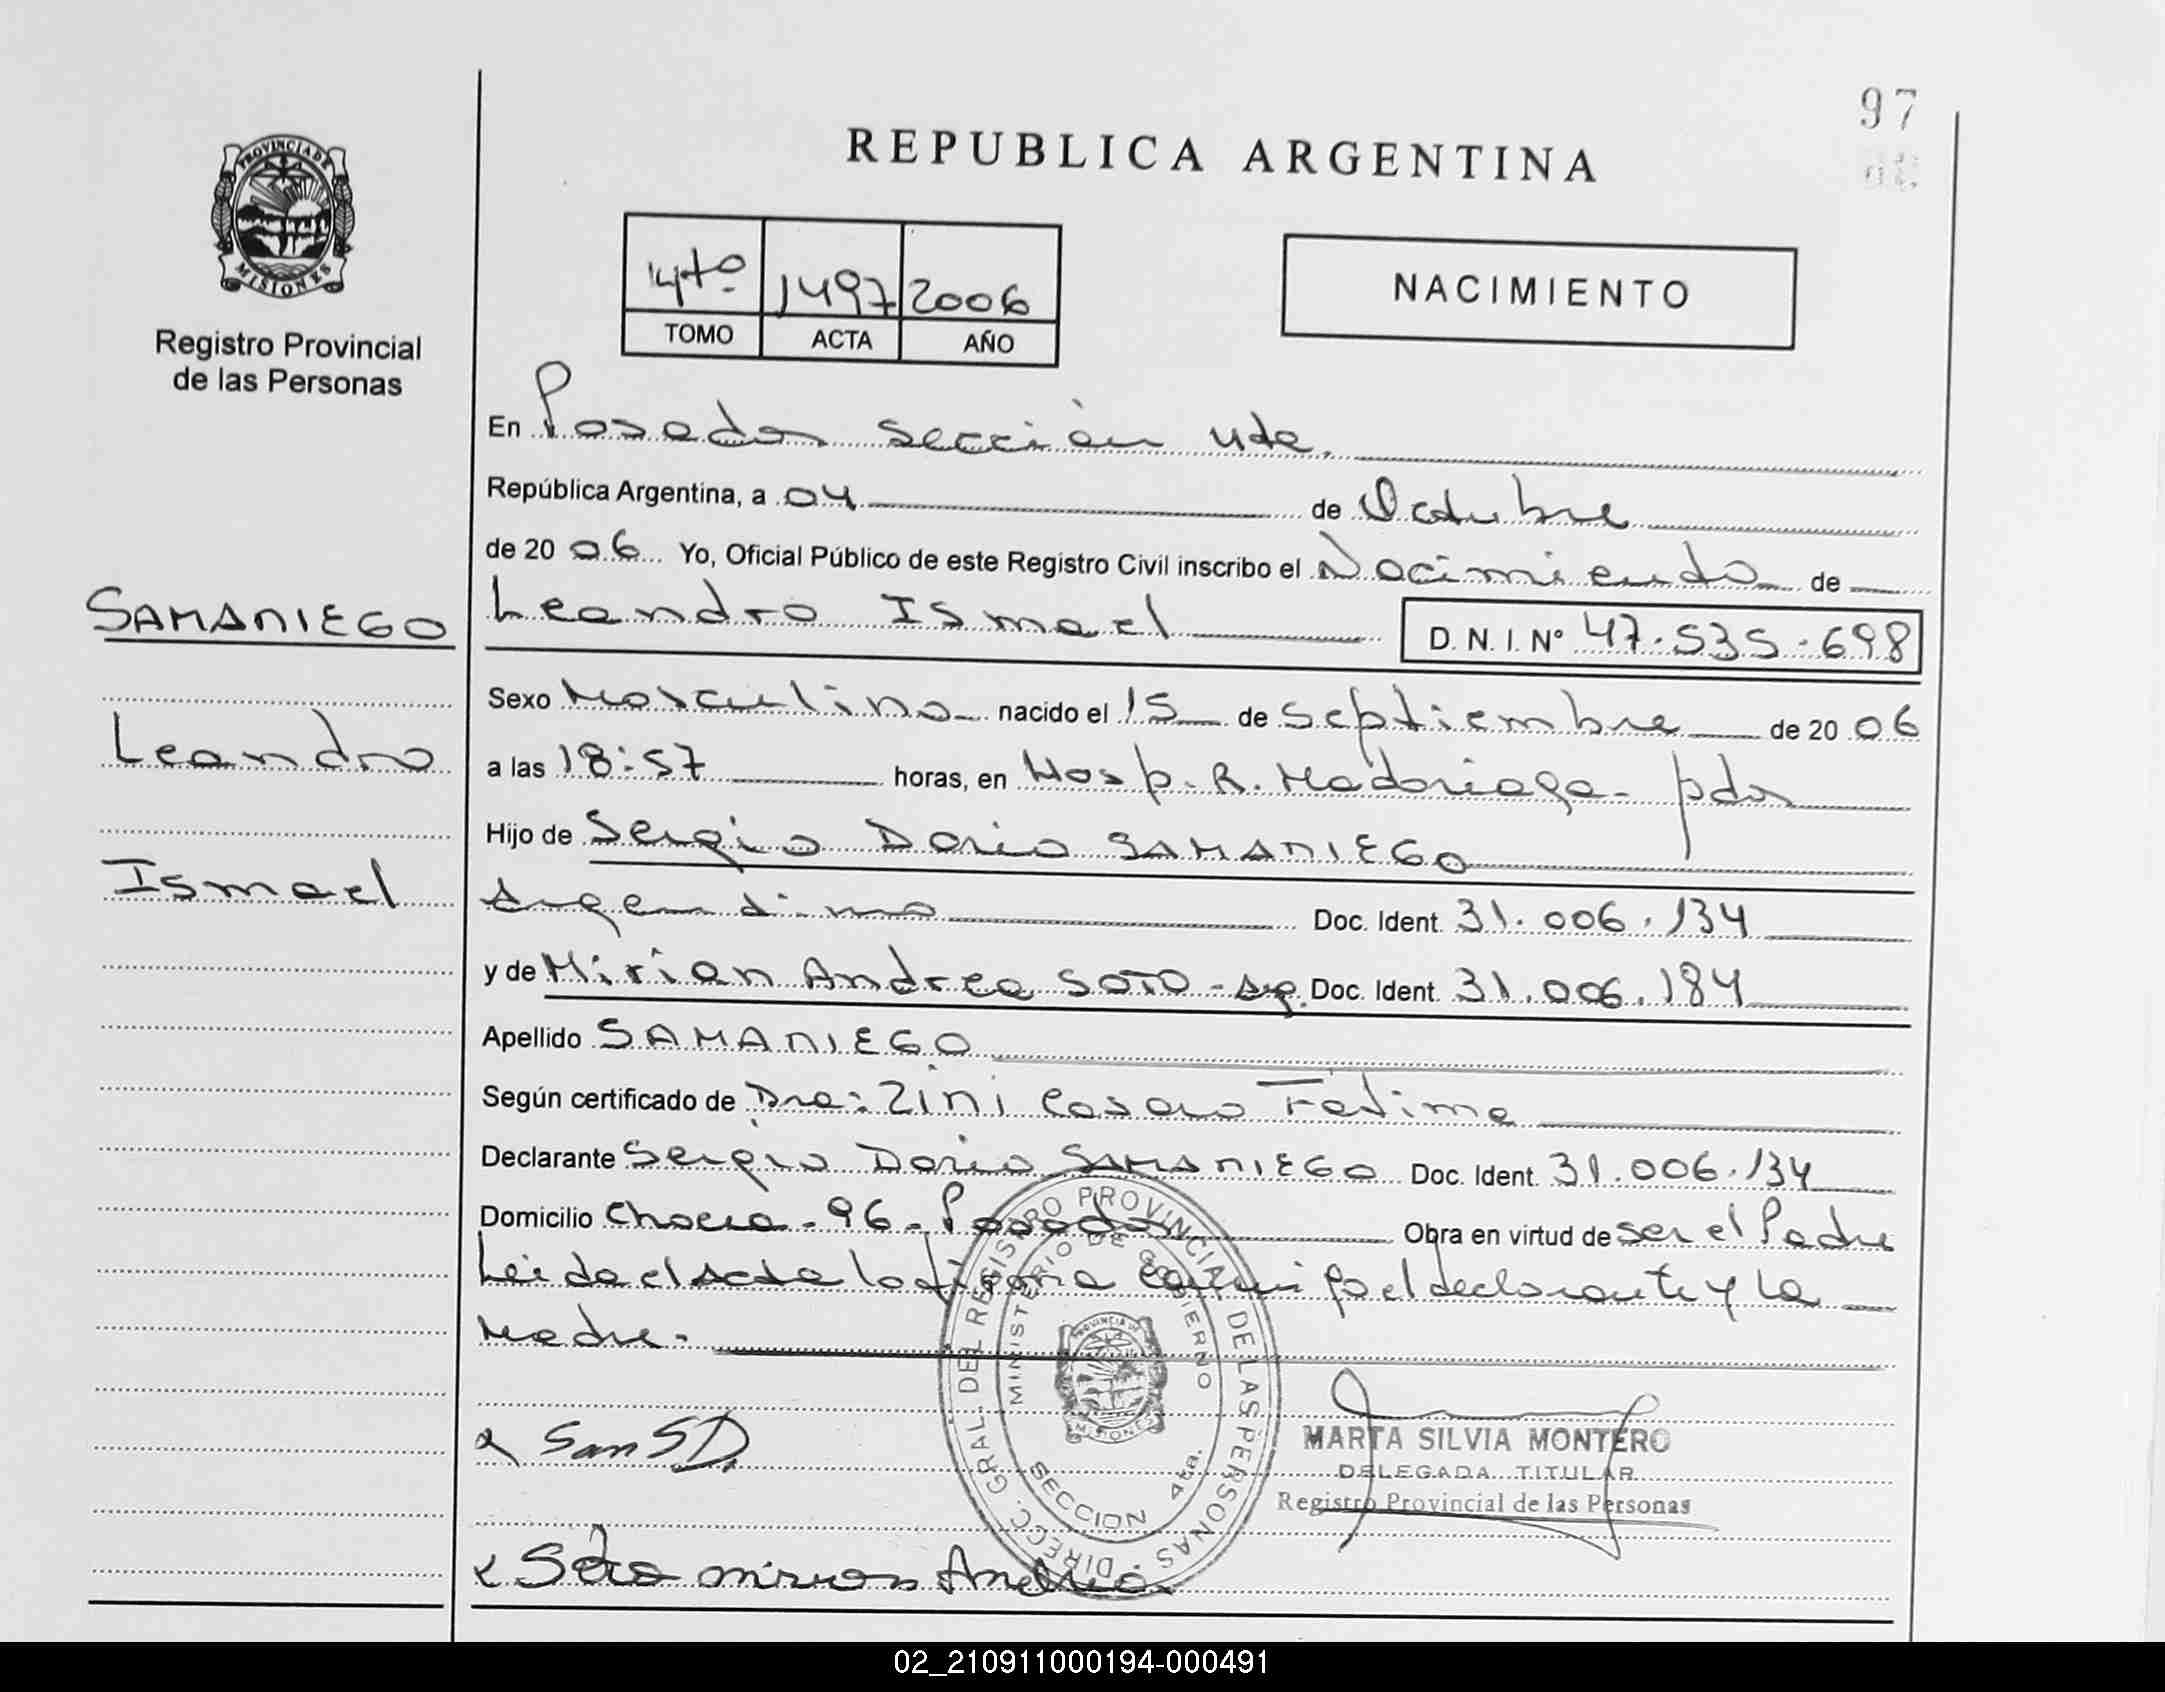 97
REPUBLICA ARGENTINA
PROVINCIA DE MISIONES
Registro Provincial
de las Personas
4to 1497 2006
TOMO ACTA AÑO
NACIMIENTO
En Posadas sección 4ta.
República Argentina, a 04 de Octubre
de 20 06 Yo, Oficial Público de este Registro Civil inscribo el Nacimiento de
SAMANIEGO
Leandro Ismael D. N. I. N° 47.535.698
Sexo Masculino nacido el 15 de septiembre de 20 06
Leandro
a las 18:57 horas, en Hosp. R. Madariaga - pdas
Hijo de Sergio Dario SAMANIEGO
Ismael
Argentino Doc. Ident. 31.006.134
y de Mirian Andrea SOTO - Ag. Doc. Ident. 31.006.184
Apellido SAMANIEGO
Según certificado de Dra: Zini Fatima
Declarante Sergio Dario SAMANIEGO Doc. Ident. 31.006.134
Domicilio - 96 - Posadas Obra en virtud de ser el Padre
Leida el Acta la firma conmigo el declarante y la
Madre.
DIRECC. GRAL. DEL REGISTRO PROVINCIAL DE LAS PERSONAS
MINISTERIO DE GOBIERNO
PROVINCIA DE MISIONES
SECCION 4ta.
MARTA SILVIA MONTERO
DELEGADA TITULAR
Registro Provincial de las Personas
Sam S D.
Soto Andrea
02_210911000194-000491